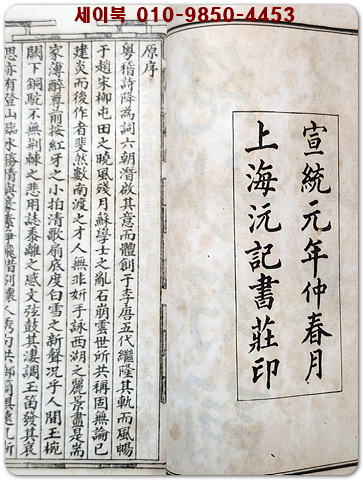 세이북 010-9850-4453
宣統元年仲春月
上海沅記書莊印
原序
粤稽詩降為詞六朝潛啟其意而體創于李唐五代繼隆其軌而風暢
于趙宋柳屯田之曉風殘月蘇學士之亂石崩雲世所共稱固無論已
建炎而後作者斐然數南渡之才人無非妍手詠西湖之麗景盡是耑
家薄醉尊前按紅牙之小拍清歌扇底度白雪之新聲況乎人間玉椀
闕下銅駝不無荆棘之悲用誌黍離之感文弦鼓其淒調玉笛發其哀
思亦有登山臨水勝情與豪素爭飛惜別懷人秀句共郵筒俱遠凡斯